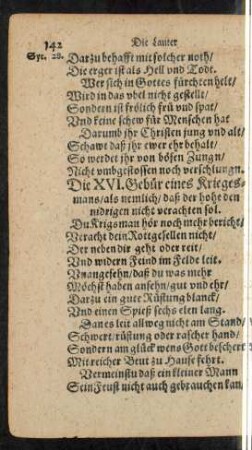 142 Die Lauter
Syr. 28. Darzu behafft mit solcher noth/
Die erger ist als Hell vnd Todt.
Wer sich in Gottes fürchten helt/
Wird in das vbel nicht gestellt/
Sondern ist frölich frü vnd spat/
Vnd keine schew für Menschen hat
Darumb jhr Christen jung vnd alt/
Schawt daß jhr ewer ehr behalt/
So werdet jhr von bösen Zungn/
Nicht vmbgestossen noch verschlungn.
Die XVI. Gebür eines Krieges-
mans/ als nemlich/ daß der hohe den
nidrigen nicht verachten sol.
Du Krigsman hör noch mehr bericht/
Veracht dein Rottgesellen nicht/
Der neben dir geht oder reit/
Vnd widern Feind im Felde leit.
Vnangesehn/ daß du was mehr
Möchst haben ansehn/ gut vnd ehr/
Darzu ein gute Rüstung blanck/
Vnd einen Spieß sechs elen lang.
Sanes leit all weg nicht am Stand/
Schwert/ rüstung oder rascher hand/
Sondern am glück wens Gott beschert
Mit reicher Beut zu Hause fehrt.
Vermeinstu daß ein kleiner Mann
Sein Feust nicht auch gebrauchen kan/